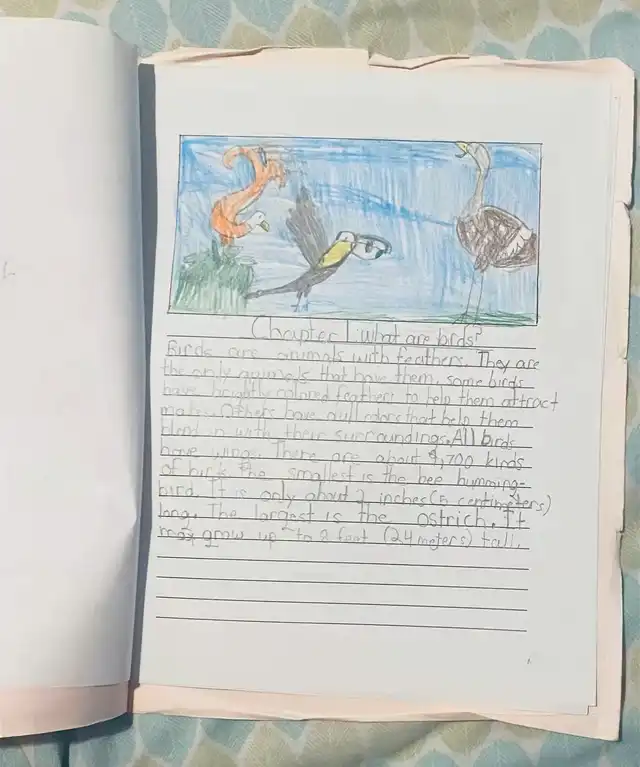 Chapter 1: what are birds?
Birds are animals with feathers. They are
the only animals that have them. some birds
have brightly colored feathers to help them attract
mates. Others have dull colors that help them
blend in with their surroundings. All birds
have wings. There are about 9,700 kinds
of birds. the smallest is the bee humming-
bird. It is only about 2 inches (5 centimeters)
long. The largest is the ostrich. It
may grow up to 8 feet (2.4 meters) tall.